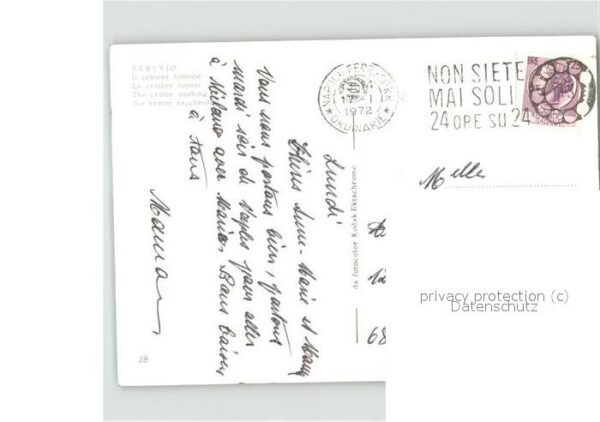 VESUVIO
Il cratere fumante
Le cratère fumant
The crater smoking
Der krater rauchend
Lundi
Chères Anne-Marie et
Nous nous portons bien, partons
mardi soir de Naples pour aller
à Milano avec Bons baisers
à tous
Maman
28
da fotocolor Kodak Ektachrome
NAPOLI FERROVIA
1972
* ORDINARIE *
NON SIETE
MAI SOLI
24 ORE SU 24
LIRE
Melle
68
privacy protection (c)
Datenschutz